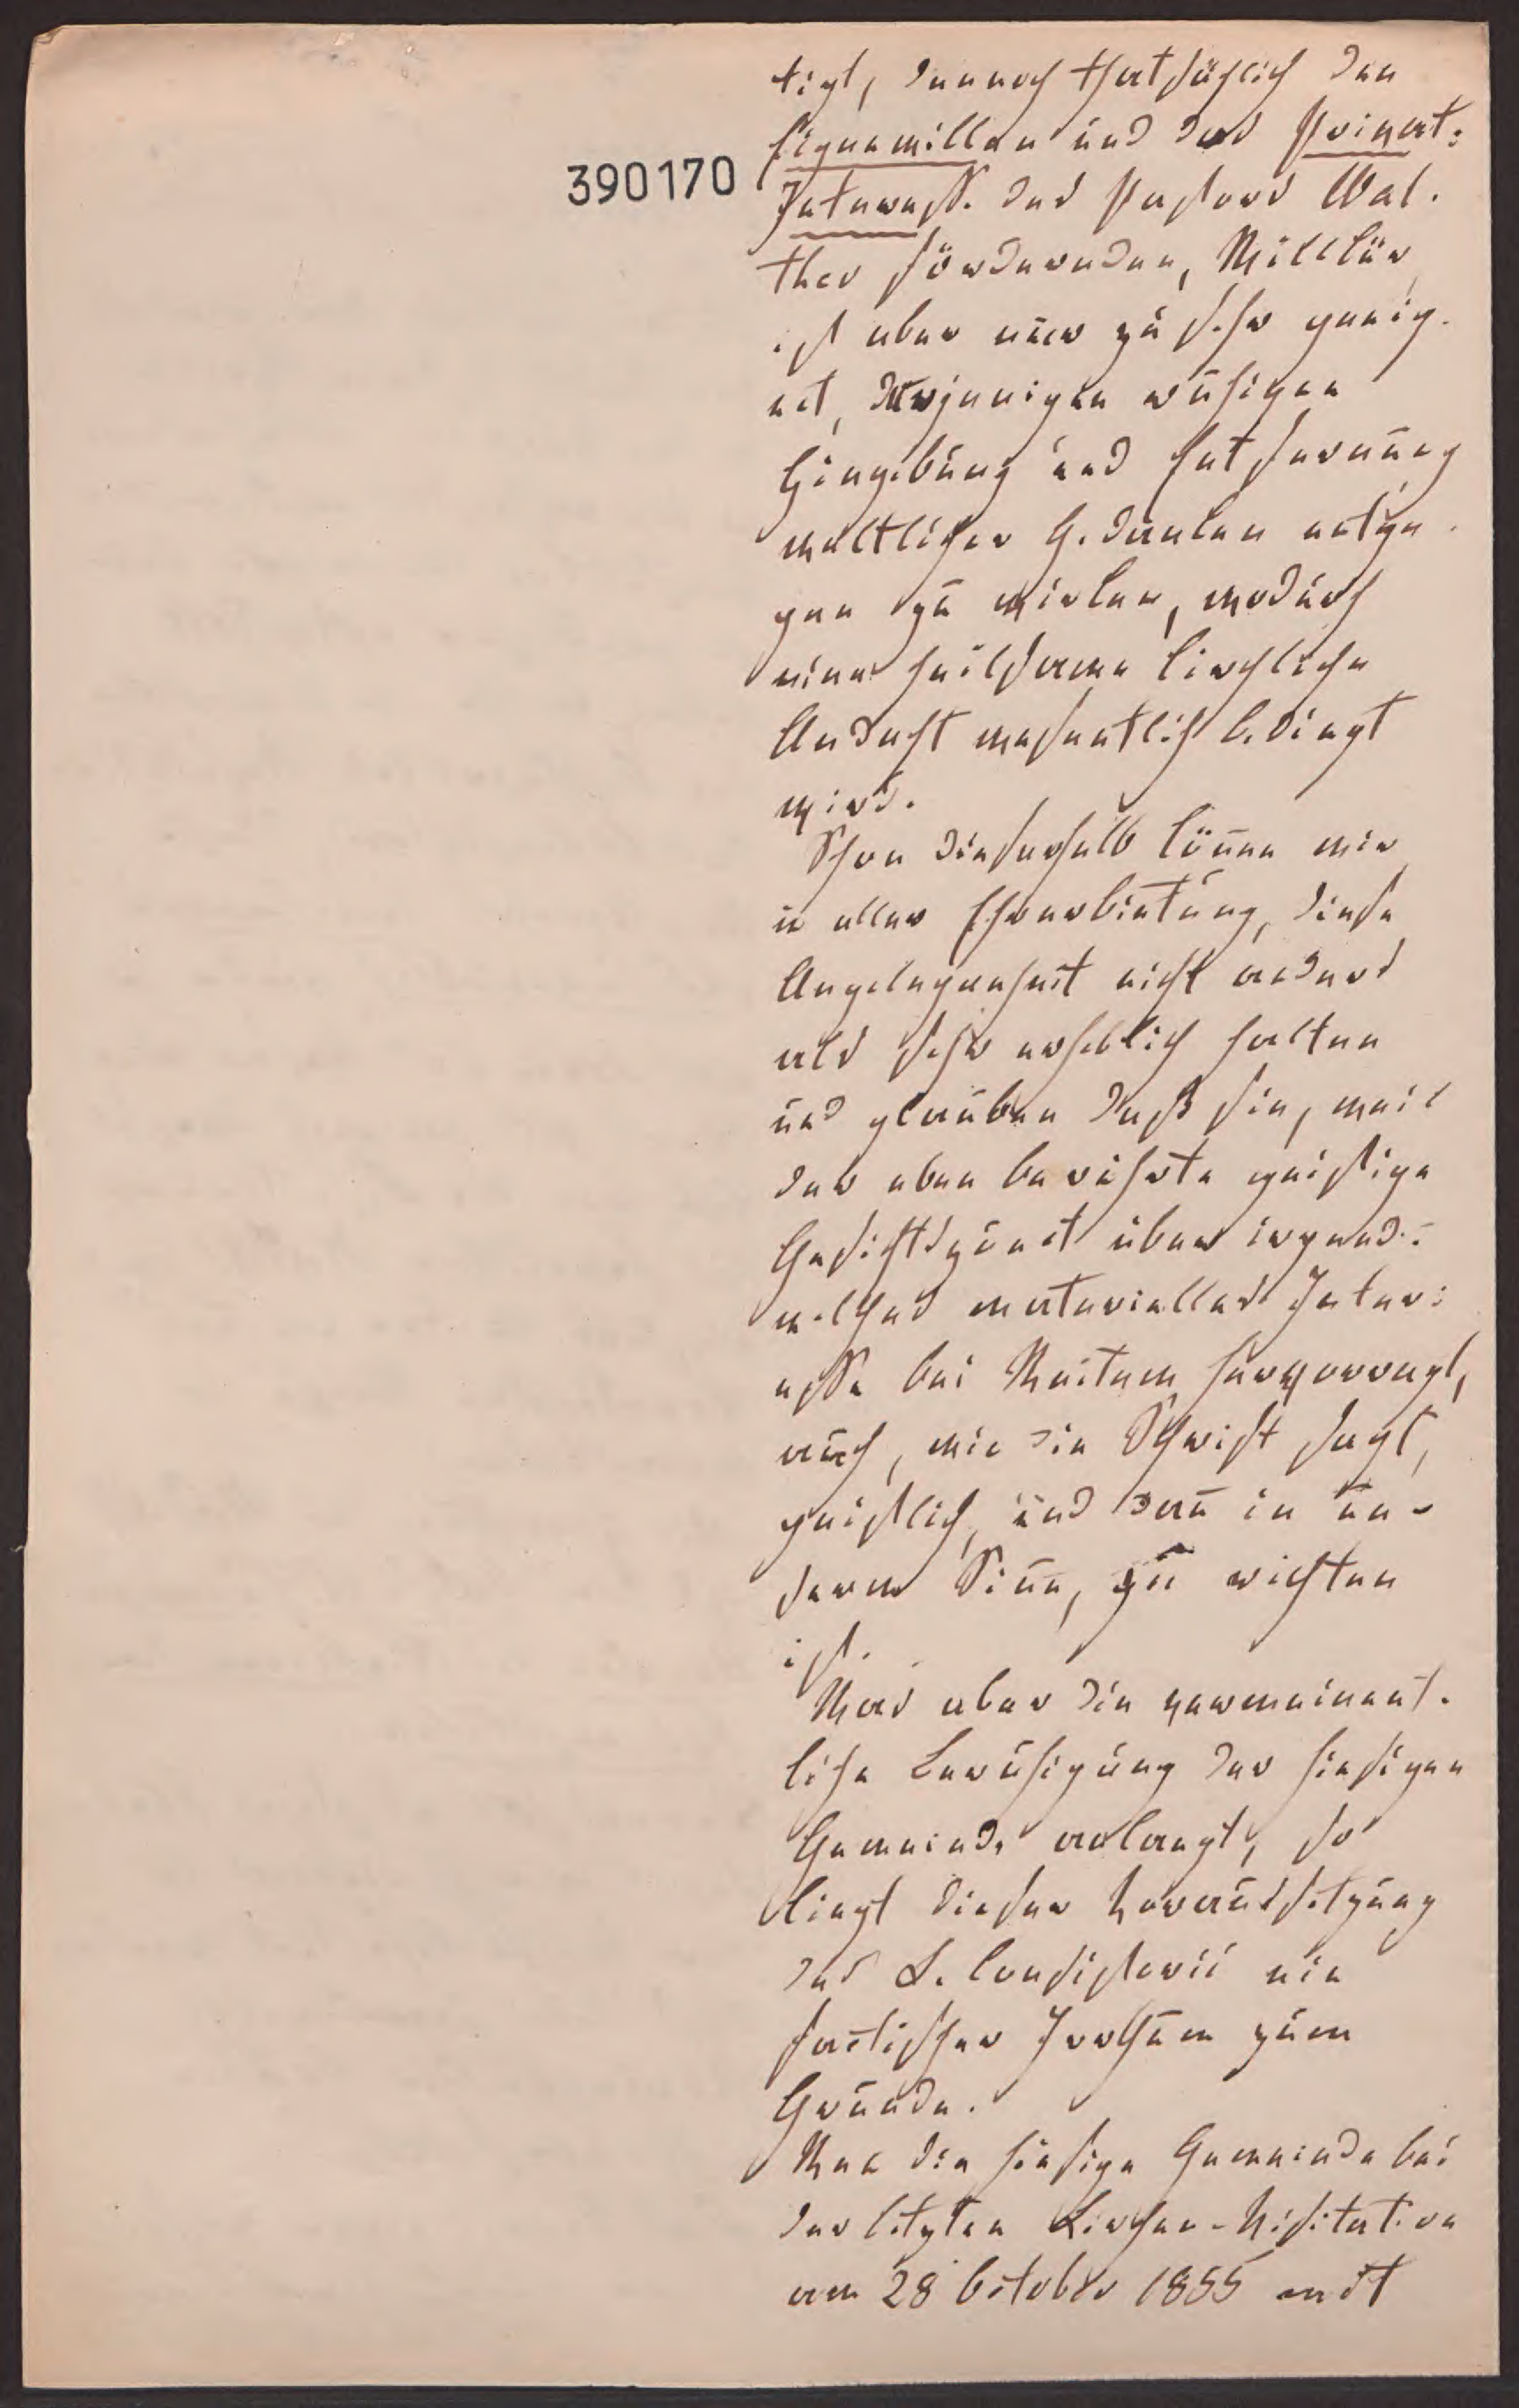 390170
tigt, dennoch thatsächlich den
Eigenwillen und das Privat=
Interesse. des Pastors Wal-
ther fördernden, Willkür,
ist aber nur zu sehr geeig-
net, derjenigen ruhigen
Hingebung und Entfernung
weltlicher Gedanken entge-
gen zu wirken, wodurch
eine heilsame kirchliche
Andacht wesentlich bedingt
wird.
Schon dieserhalb können wir
in aller Ehrerbietung, diese
Angelegenheit nicht anders
als sehr erheblich halten
und glauben daß sie, weil
der eben berührte geistige
Gesichtspunct über irgend=
welches materielles Inter=
esse bei Weitem hervorragt,
auch, wie die Schrift sagt,
geistlich, und dann in un-
serm Sinn, zu richten
ist.
Was aber die vermeinent-
liche Beruhigung der hiesigen
Gemeinde anlangt, so
liegt dieser Voraussetzung
des K. Consistorii ein
factischer Irrthum zum
Grunde.
Wenn die hiesige Gemeinde bei
der letzten Kirchen-Visitation
am 28 October 1855 nicht